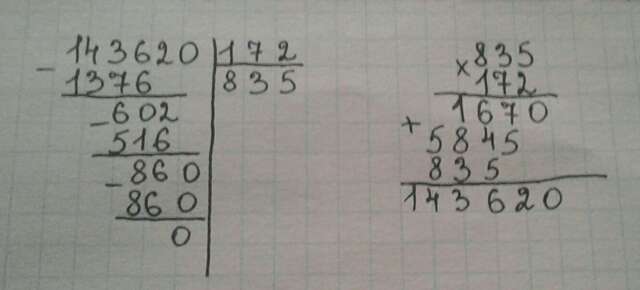 - 143620 | 172
1376 | 835
- 602
516
- 860
860
0
× 835
172
1670
+ 5845
835
143620